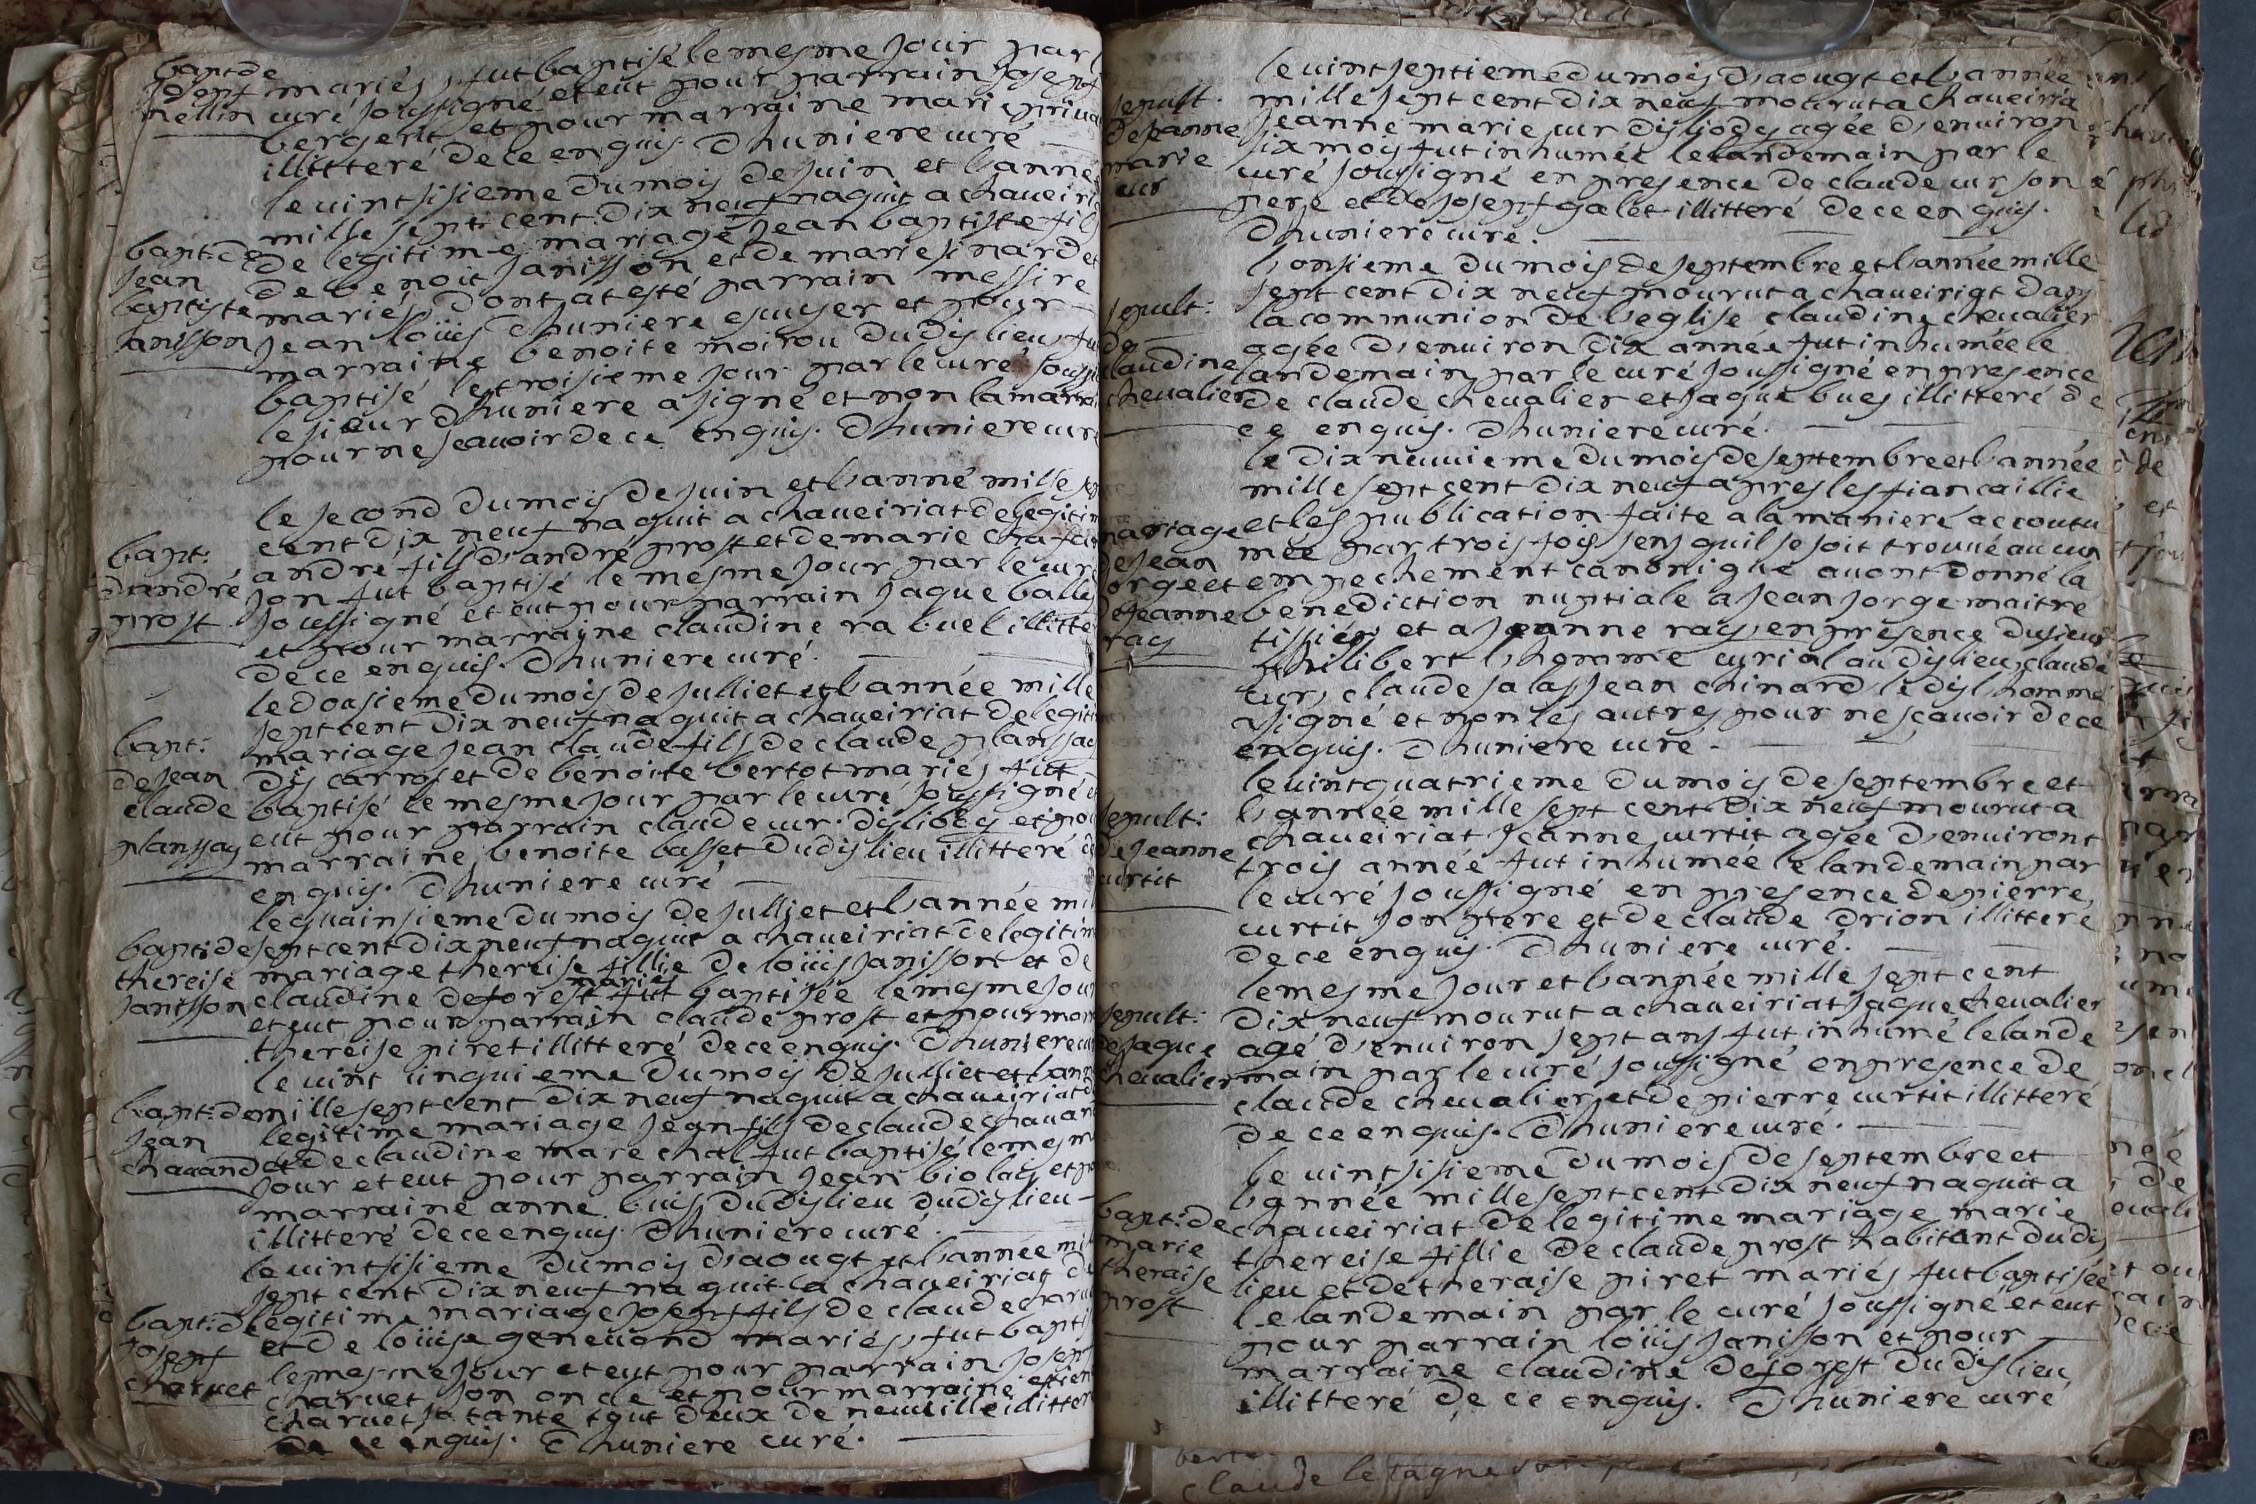 bapt de
josept
nellin
mariés, fut baptisé le mesme jour par
curé soussigné et eut pour parrain josept
bergerit et pour marraine marie
illitteré de ce enquis. Dhuniere curé
le vintsisieme du mois de juin et l'année
mille sept cent dix neuf naquit a chaveiriat
bapt: de
jean
baptiste
janisson
de legitime mariage jean baptiste fils
de benoit janisson et de marie sinardet
mariés, dont at esté parrain messire
jean loüis dhuniere escuyer et pour
marraine benoite moirou dudis lieu, fut
baptisé le troisieme jour par le curé
le sieur dhuniere a signé et non la marrai
pour ne scavoir de ce enquis. Dhuniere curé
bapt:
d'andré
prost
le second du mois de juin et l'anné mille sept
cent dix neuf naquit a chaveiriat de legitim
andre fils d'andré prost et de marie
son fut baptisé le mesme jour par le curé
soussigné et eut pour parrain jaque balle
et pour marraine claudine rabuel illitteré
de ce enquis. Dhuniere curé.
bapt:
de jean
claude
planssay
le dousieme du mois de julliet et l'année mille
sept cent dix neuf naquit a chaveiriat de legiti
mariage jean claude fils de claude planssay
dis carros et de benoite bertot mariés, fut
baptisé le mesme jour par le curé soussigné et
eut pour parrain claude cur. dis libey et pou
marraine benoite basset dudis lieu illitteré de
enquis. Dhuniere curé
bapt: de
thereise
janisson
le quainsieme du mois de julliet et l'année mil
sept cent dix neuf naquit a chaveiriat de legitim
mariage thereise fillie de loüis janisson et de
mariés
claudine deforest fut baptisée le mesme jour
et eut pour parrain claude prost et pour mar
thereise piret illitteré de ce enquis. Dhuniere curé
bapt: de
jean
chavand
le vint cinquieme du mois de julliet et l'ann
mille sept cent dix neuf naquit a chaveiriat d
legitime mariage jean fils de claude chavan
et de claudine marechal fut baptisé le mesm
jour et eut pour parrain jean biolay et po
marraine anne buis dudis lieu dudis lieu
illitteré de ce enquis. Dhuniere curé.
bapt: de
josept
charvet
le vintsisieme du mois d'aougt et l'année mil
sept cent dix neuf naquit a chaveiriat de
legitime mariage josept fils de claude charv
et de loüise genevond mariés, fut bapti
le mesme jour et eut pour parrain josep
charvet son oncle et pour marraine etien
charvet sa tante tout deux de neuville illitteré
de ce enquis. Dhuniere curé.
sepult.
de jeanne
marie
cur
le vint septieme du mois d'aougt et l'année
mille sept cent dix neuf mourut a chaveiria
jeanne marie cur dis jodey agée d'environ
six mois fut inhumée le landemain par le
curé soussigné en presence de claude cur son
pere et de josept galet illitteré de ce enquis.
Dhuniere curé.
sepult:
de
claudine
chevalier
l'onsieme du mois de septembre et l'année mille
sept cent dix neuf mourut a chaveiriat dans
la communion de l'eglise claudine chevalier
agée d'environ dix année fut inhumée le
landemain par le curé soussigné en presence
de claude chevalier et jaque buis illitteré de
ce enquis. Dhuniere curé.
mariage
de jean
jorge et
de jeanne
ray
le dix neuvieme du mois de septembre et l'année
mille sept cent dix neuf apres les fiancaillie
et les publication faite a la maniere accoutu
mée par trois fois sens quil se soit trouvé aucun
empechement canonique avont donné la
benediction nuptiale a jean jorge maitre
tissier, et a jeanne ray, en presence du sieur
philibert l'homme curial au dis lieu, claude
cur, claude salas, jean chinard, le dis l'homme
signé et non les autres pour ne sçavoir de ce
enquis. Dhuniere curé.
sepult:
de jeanne
curtit
le vint quatrieme du mois de septembre et
l'année mille sept cent dix neuf mourut a
chaveiriat jeanne curtit agée d'environt
trois année fut inhumée le landemain par
le curé soussigné en presence de pierre
curtit son pere et de claude drion illitteré
de ce enquis. Dhuniere curé.
sepult:
de jaque
chevalier
le mesme jour et l'année mille sept cent
dix neuf mourut a chaveiriat jaque chevalier
agé d'environ sept ans fut inhumé le lande
main par le curé soussigné en presence de
claude chevalier, et de pierre curtit illitteré
de ce enquis. Dhuniere curé.
bapt: de
marie
theraise
prost
le vintsisieme du mois de septembre et
l'année mille sept cent dix neuf naquit a
chaveiriat de legitime mariage marie
thereise fillie de claude prost habitant dudis
lieu et de theraise piret mariés, fut baptisée
le landemain par le curé soussigné et eut
pour parrain loüis janisson et pour
marraine claudine deforest dudis lieu
illitteré de ce enquis. Dhuniere curé
claude